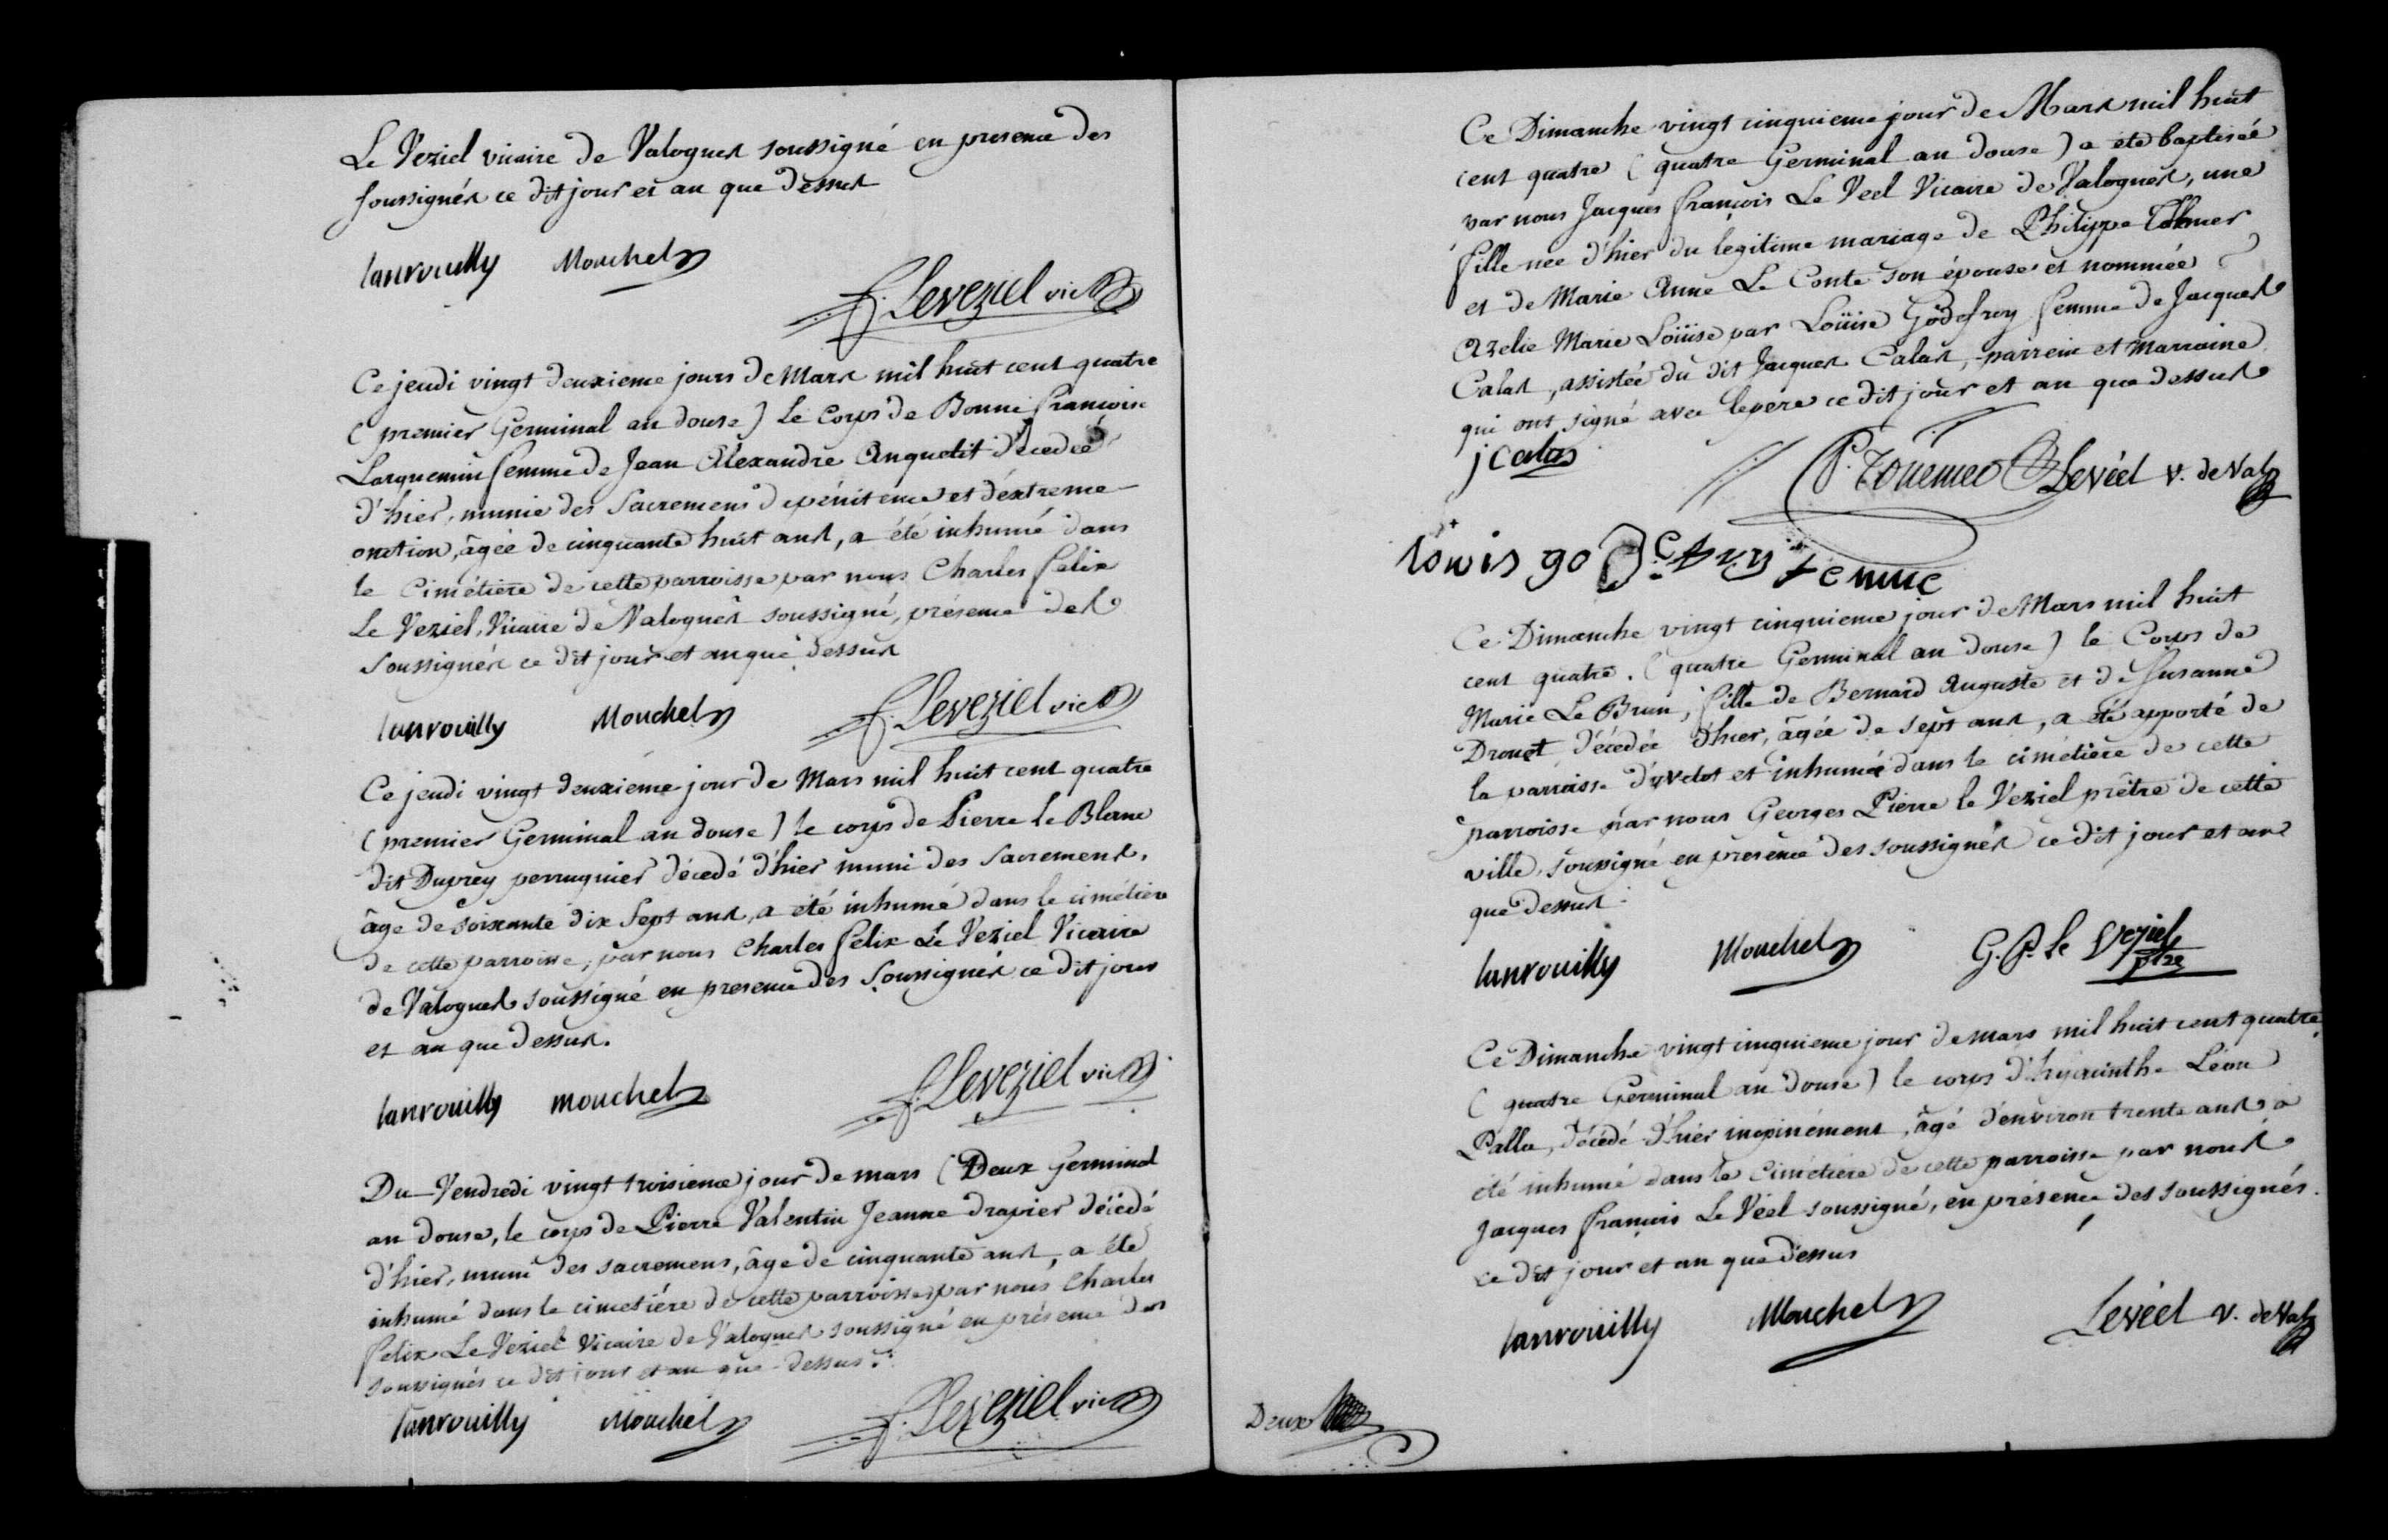 Le Veziel vicaire de Valognes soussigné en presence des
soussignés ce dit jour et an que dessus
lanrouilly Mouchel
f. Leveziel vic
Ce jeudi vingt deuxieme jours de Mars mil huit cent quatre
( premier Germinal an douse ) le Corps de Bonne françoise
Larquemin femme de Jean Alexandre Anquetil décédée
d'hier, munie des Sacremens de pénitence et d'extreme
onction, âgée de cinquante huit ans, a été inhumé dans
le Cimétiere de cette parroisse par nous Charles felix
Le Veziel, Vicaire de Valognes soussigné, présence des
Soussignés ce dit jour et an que dessus
lanrouilly Mouchel f. Leveziel vic
Ce jeudi vingt deuxiéme jour de Mars mil huit cent quatre
( premier Germinal an douse ) le corps de Pierre Le Blanc
dit Duprey perruquier décédé d'hier muni des Sacremens,
âge de soixante dix sept ans, a été inhumé dans le cimétiere
de cette parroisse, par nous Charles felix Le Veziel Vicaire
de Valognes soussigné en presence des Soussignés ce dit jour
et an que dessus.
lanrouilly mouchel f. Leveziel vic
Du Vendredi vingt troisieme jour de mars ( Deux Germinal
an douse, le corps de Pierre Valentin Jeanne drapier décédé
d'hier, muni des sacremens, âge de cinquante ans, a été
inhumé dans le cimetiére de cette parroisse par nous Charles
felix Le Veziel Vicaire de Valognes soussigné en présence des
soussignés ce dit jour et an que dessus.
lanrouilly Mouchel f. Leveziel vic
Ce Dimanche vingt cinquieme jour de Mars mil huit
cent quatre ( quatre Germinal an douse ) a été baptisée
par nous Jacques françois Le Veel Vicaire de Valognes, une
fille née d'hier du legitime mariage de Philippe
et de Marie Anne Le Conte son épouse et nommée
Azelie Marie Loüise par Loüise Godefroy femme de Jacques
Calas, assistée du dit Jacques Calas, parrein et marraine
qui ont signé avec le pere ce dit jour et an que dessus
j calas P. Levéel v. de Val
lowis go femme
Ce Dimanche vingt cinquieme jour de Mars mil huit
cent quatre. ( quatre Germinal an douse ) le Corps de
Marie Le Brun, fille de Bernard Auguste et de Susanne
Drouet décedée d'hier, âgée de sept ans, a été apporté de
la parroisse d'yvetot et inhumé dans le cimétiere de cette
parroisse par nous Georges Pierre le Veziel prêtre de cette
ville, soussigné en presence des soussignés ce dit jour et an
que dessus.
lanrouilly Mouchel G. P. Le Veziel
ptre
Ce Dimanche vingt cinquieme jour de mars mil huit cent quatre
( quatre Germinal an douse ) le corps d'hyacinthe Léon
Palla, décédé d'hier inopinément, âgé d'environ trente ans a
été inhumé dans le Cimétiére de cette parroisse par nous
Jacques françois Le Véel soussigné, en présence des soussignés.
ce dit jour et an que dessus
lanrouilly Mouchel Levéel v. de Val
Deux